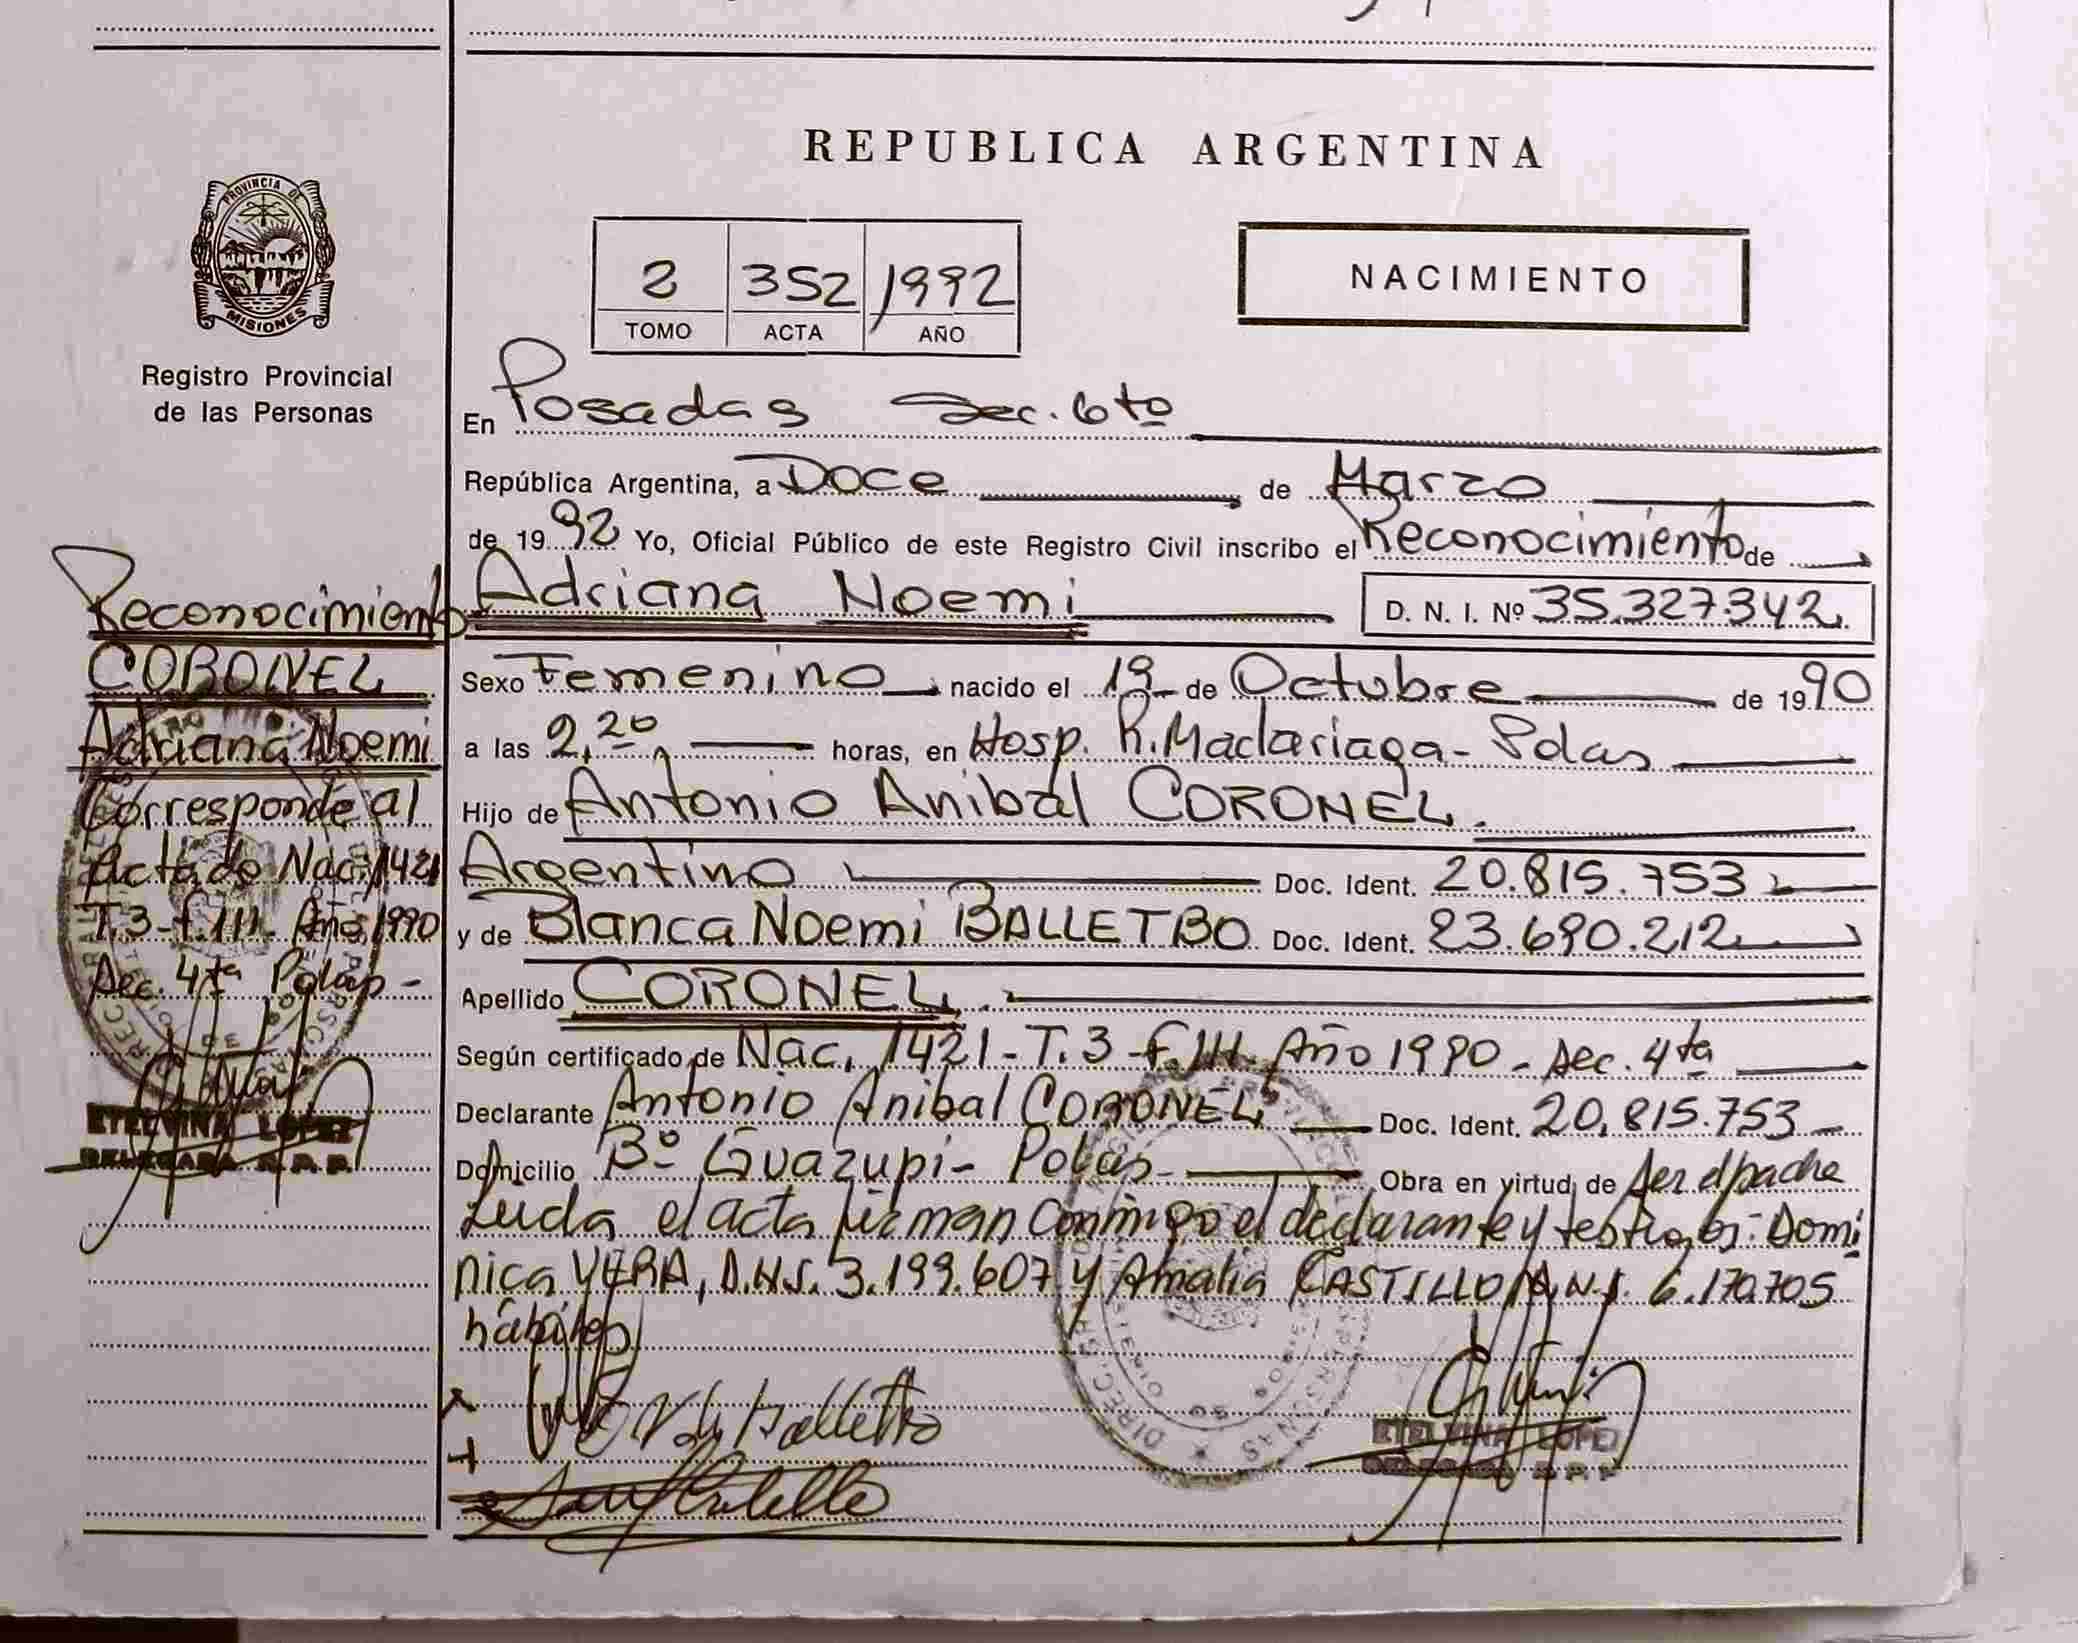 REPUBLICA ARGENTINA
PROVINCIA DE
MISIONES
Registro Provincial
de las Personas
2 352 1992
TOMO ACTA AÑO
NACIMIENTO
En Posadas Sec. 6to
República Argentina, a Doce de Marzo
de 1992 Yo, Oficial Público de este Registro Civil inscribo el Reconocimiento de
Adriana Noemi D. N. I. Nº 35.327.342
Sexo Femenino nacido el 19 de Octubre de 1990
a las 2,20 horas, en Hosp. R. Madariaga - Pdas
Hijo de Antonio Anibal CORONEL
Argentino Doc. Ident. 20.815.753
y de Blanca Noemi BALLETBO Doc. Ident. 23.690.212
Apellido CORONEL
Según certificado de Nac. 1421 - T. 3 - f. 111 - Año 1990 - Sec. 4ta
Declarante Antonio Anibal CORONEL Doc. Ident. 20.815.753
Domicilio Bº Guazupi - Pdas - Obra en virtud de ser el padre
Leida el acta firman conmigo el declarante y testigos: Domi
nica VERA, D.N.I. 3.199.607 y Amalia CASTILLO D.N.I. 6.170.705
hábiles
Reconocimiento
CORONEL
Adriana Noemi
Corresponde al
Acta de Nac. 1421
T. 3 - f. 111 - Año 1990
Sec. 4ta Pdas -
ETELVINA LOPEZ
DELEGADA R. P. P.
ETELVINA LOPEZ
DELEGADA R. P. P.